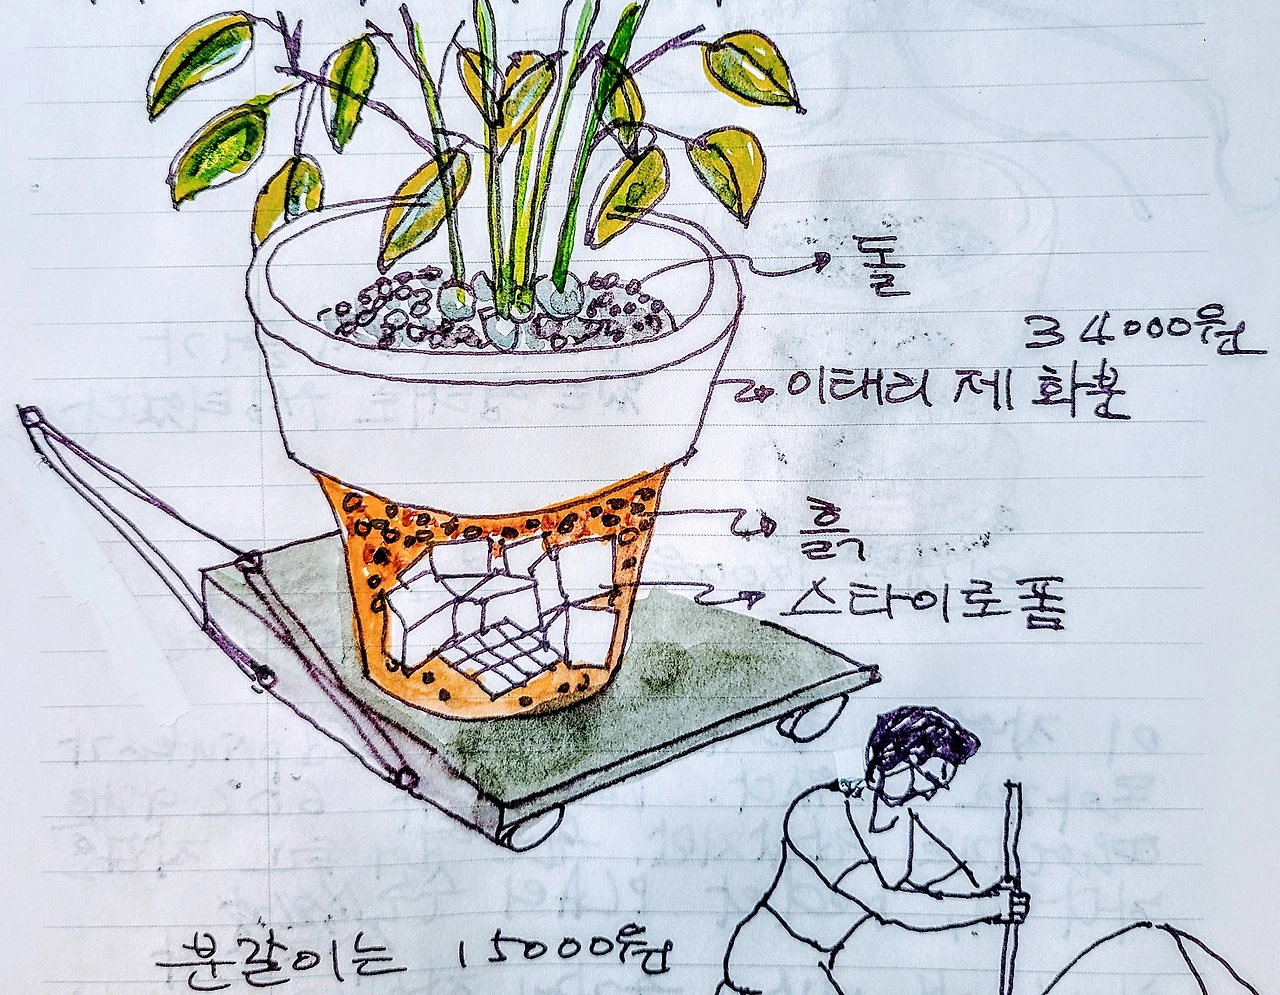 돌
34000원
이태리 제 화분
흙
스타이로폼
분갈이는 15000원